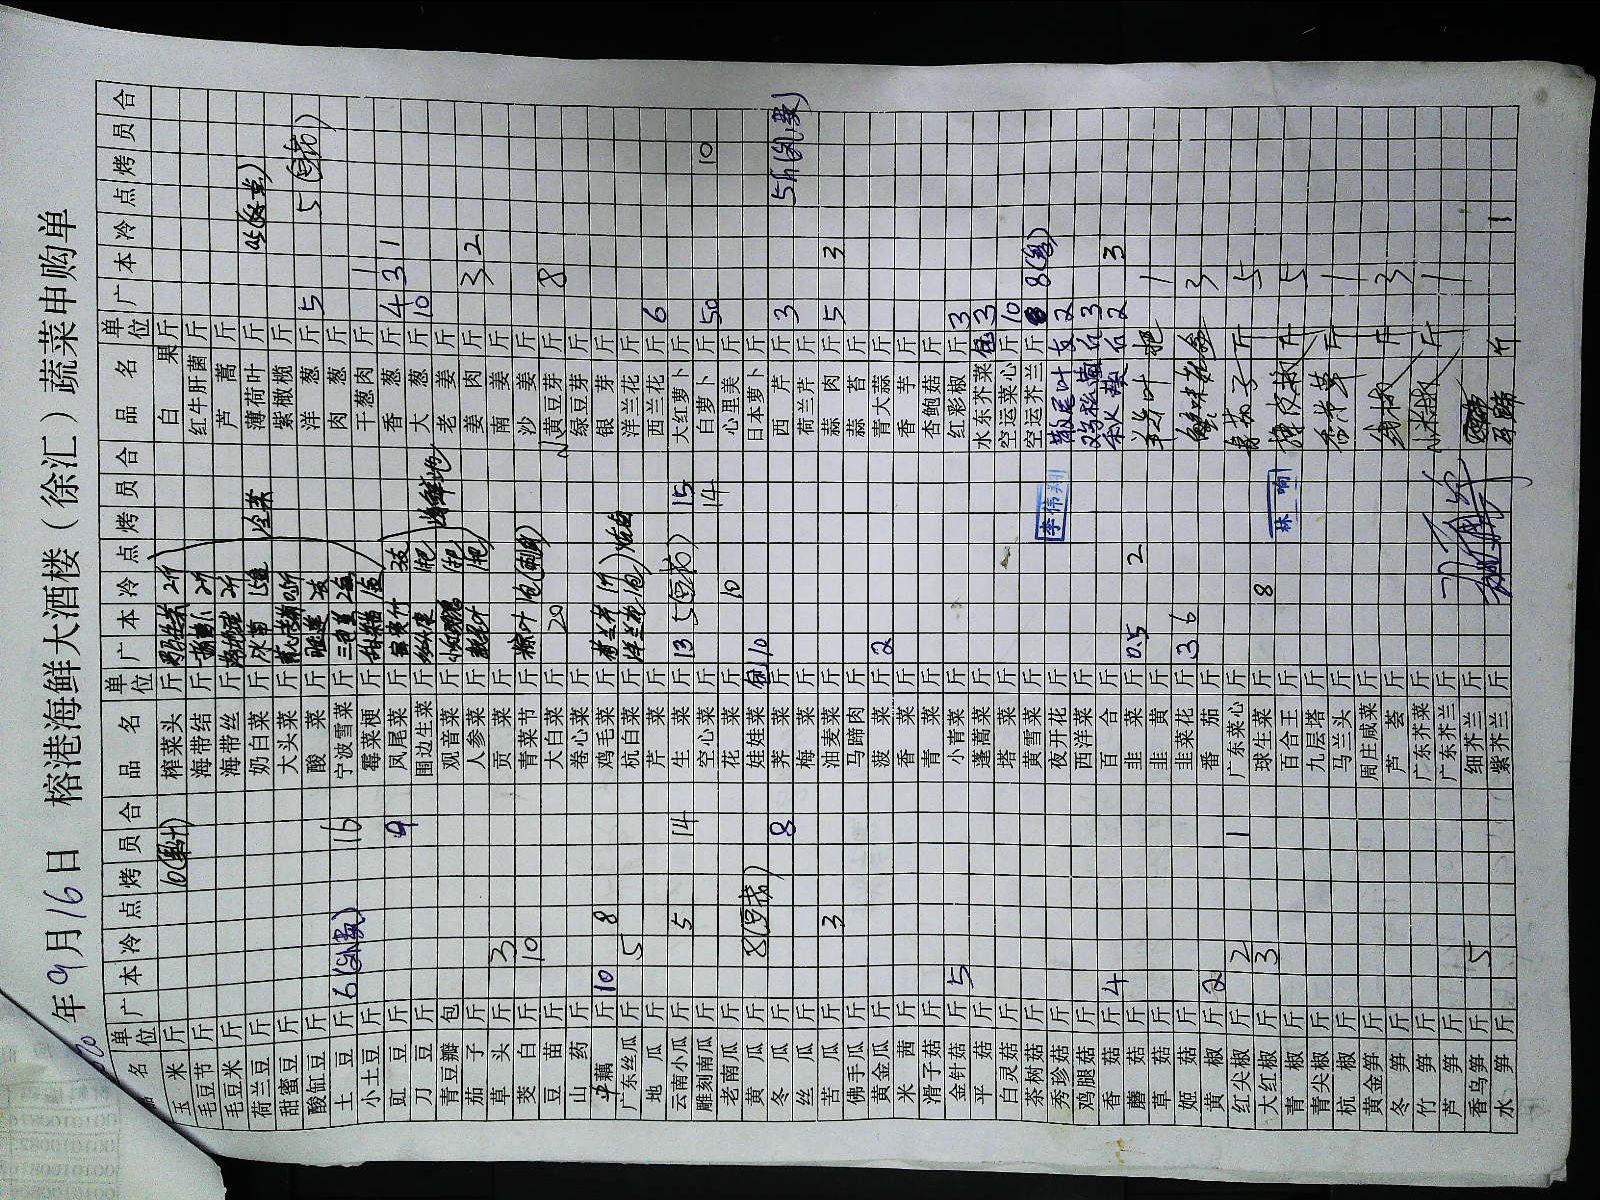 年9月16日 榕港海鲜大酒楼（徐汇）蔬菜申购单
品 名 单位 广 本 冷 点 烤 员 合 品 名 单位 广 本 冷 点 烤 员 合 品 名 单位 广 本 冷 点 烤 员 合
玉 米 斤 10 榨菜头 斤 2斤 白 果 斤
毛豆节 斤 海带结 斤 2斤 红牛肝菌 斤
毛豆米 斤 海带丝 斤 2斤 芦 蒿 斤
荷兰豆 斤 奶白菜 斤 冰菜 薄荷叶 斤
甜蜜豆 斤 大头菜 斤 紫橄榄 斤
酸缸豆 斤 酸 菜 斤 洋 葱 斤 5 5
土 豆 斤 6 16 宁波雪菜 斤 肉 葱 斤
小土豆 斤 霉菜梗 斤 干葱肉 斤 1
豇 豆 斤 9 凤尾菜 斤 香 葱 斤 4 3 1
刀 豆 斤 围边生菜 斤 大 葱 斤 10
青豆瓣 包 观音菜 斤 老 姜 斤
茄 子 斤 人参菜 斤 姜 肉 斤 3 2
草 头 斤 3 贡 菜 斤 南 姜 斤
茭 白 斤 10 青菜节 斤 沙 姜 斤
豆 苗 斤 大白菜 斤 20 黄豆芽 斤 8
山 药 斤 卷心菜 斤 绿豆芽 斤
藕 斤 10 8 鸡毛菜 斤 银 芽 斤
广东丝瓜 斤 5 杭白菜 斤 洋兰花 斤
地 瓜 斤 芹 菜 斤 西兰花 斤 6
云南小瓜 斤 5 14 生 菜 斤 13 5 15 大红萝卜 斤
雕刻南瓜 斤 空心菜 斤 14 白萝卜 斤 50 10
老南瓜 斤 花 菜 斤 10 心里美 斤
黄 瓜 斤 8 娃娃菜 10 日本萝卜 斤
冬 瓜 斤 8 荠 菜 斤 西 芹 斤 3 5斤
丝 瓜 斤 梅 菜 斤 荷兰芹 斤
苦 瓜 斤 3 油麦菜 斤 蒜 肉 斤 5 3
佛手瓜 斤 马蹄肉 斤 蒜 苔 斤
黄金瓜 斤 菠 菜 斤 2 青大蒜 斤
米 茜 斤 香 菜 斤 香 芋 斤
滑子菇 斤 青 菜 斤 杏鲍菇 斤
金针菇 斤 5 小青菜 斤 红彩椒 斤 3
平 菇 斤 蓬蒿菜 斤 水东芥菜 3
白灵菇 斤 塔 菜 斤 空运菜心 斤 10
茶树菇 斤 黄雪菜 斤 空运芥兰 斤 8
秀珍菇 斤 夜开花 斤 李伟翔 散尾叶 支 2
鸡腿菇 斤 西洋菜 斤 3
香 菇 斤 4 百 合 斤 秋葵 2 3
蘑 菇 斤 韭 菜 斤 0.5 2
草 菇 斤 韭 黄 斤 兰叶 把 1
姬 菇 斤 韭菜花 斤 3 6 3
黄 椒 斤 2 番 茄 斤
红尖椒 斤 2 1 广东菜心 斤 斤 5
大红椒 斤 3 球生菜 斤 8 林响 斤 5
青 椒 斤 百合王 斤
青尖椒 斤 九层塔 斤 斤 1
杭 椒 斤 马兰头 斤
黄金笋 斤 周庄咸菜 斤 线椒 斤 3
冬 笋 斤 芦 荟 斤
竹 笋 斤 广东芥菜 斤 小米椒 斤 1
芦 笋 斤 广东芥兰 斤
香乌笋 斤 5 细芥兰 斤
水 笋 斤 紫芥兰 斤 斤 1